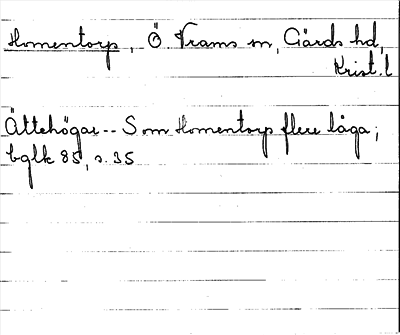 Homentorp, Ö Vrams sn, Gärds hd,
Krist. l
Ättehögar -- S om Homentorp flere låga;
bglk 85, s. 35